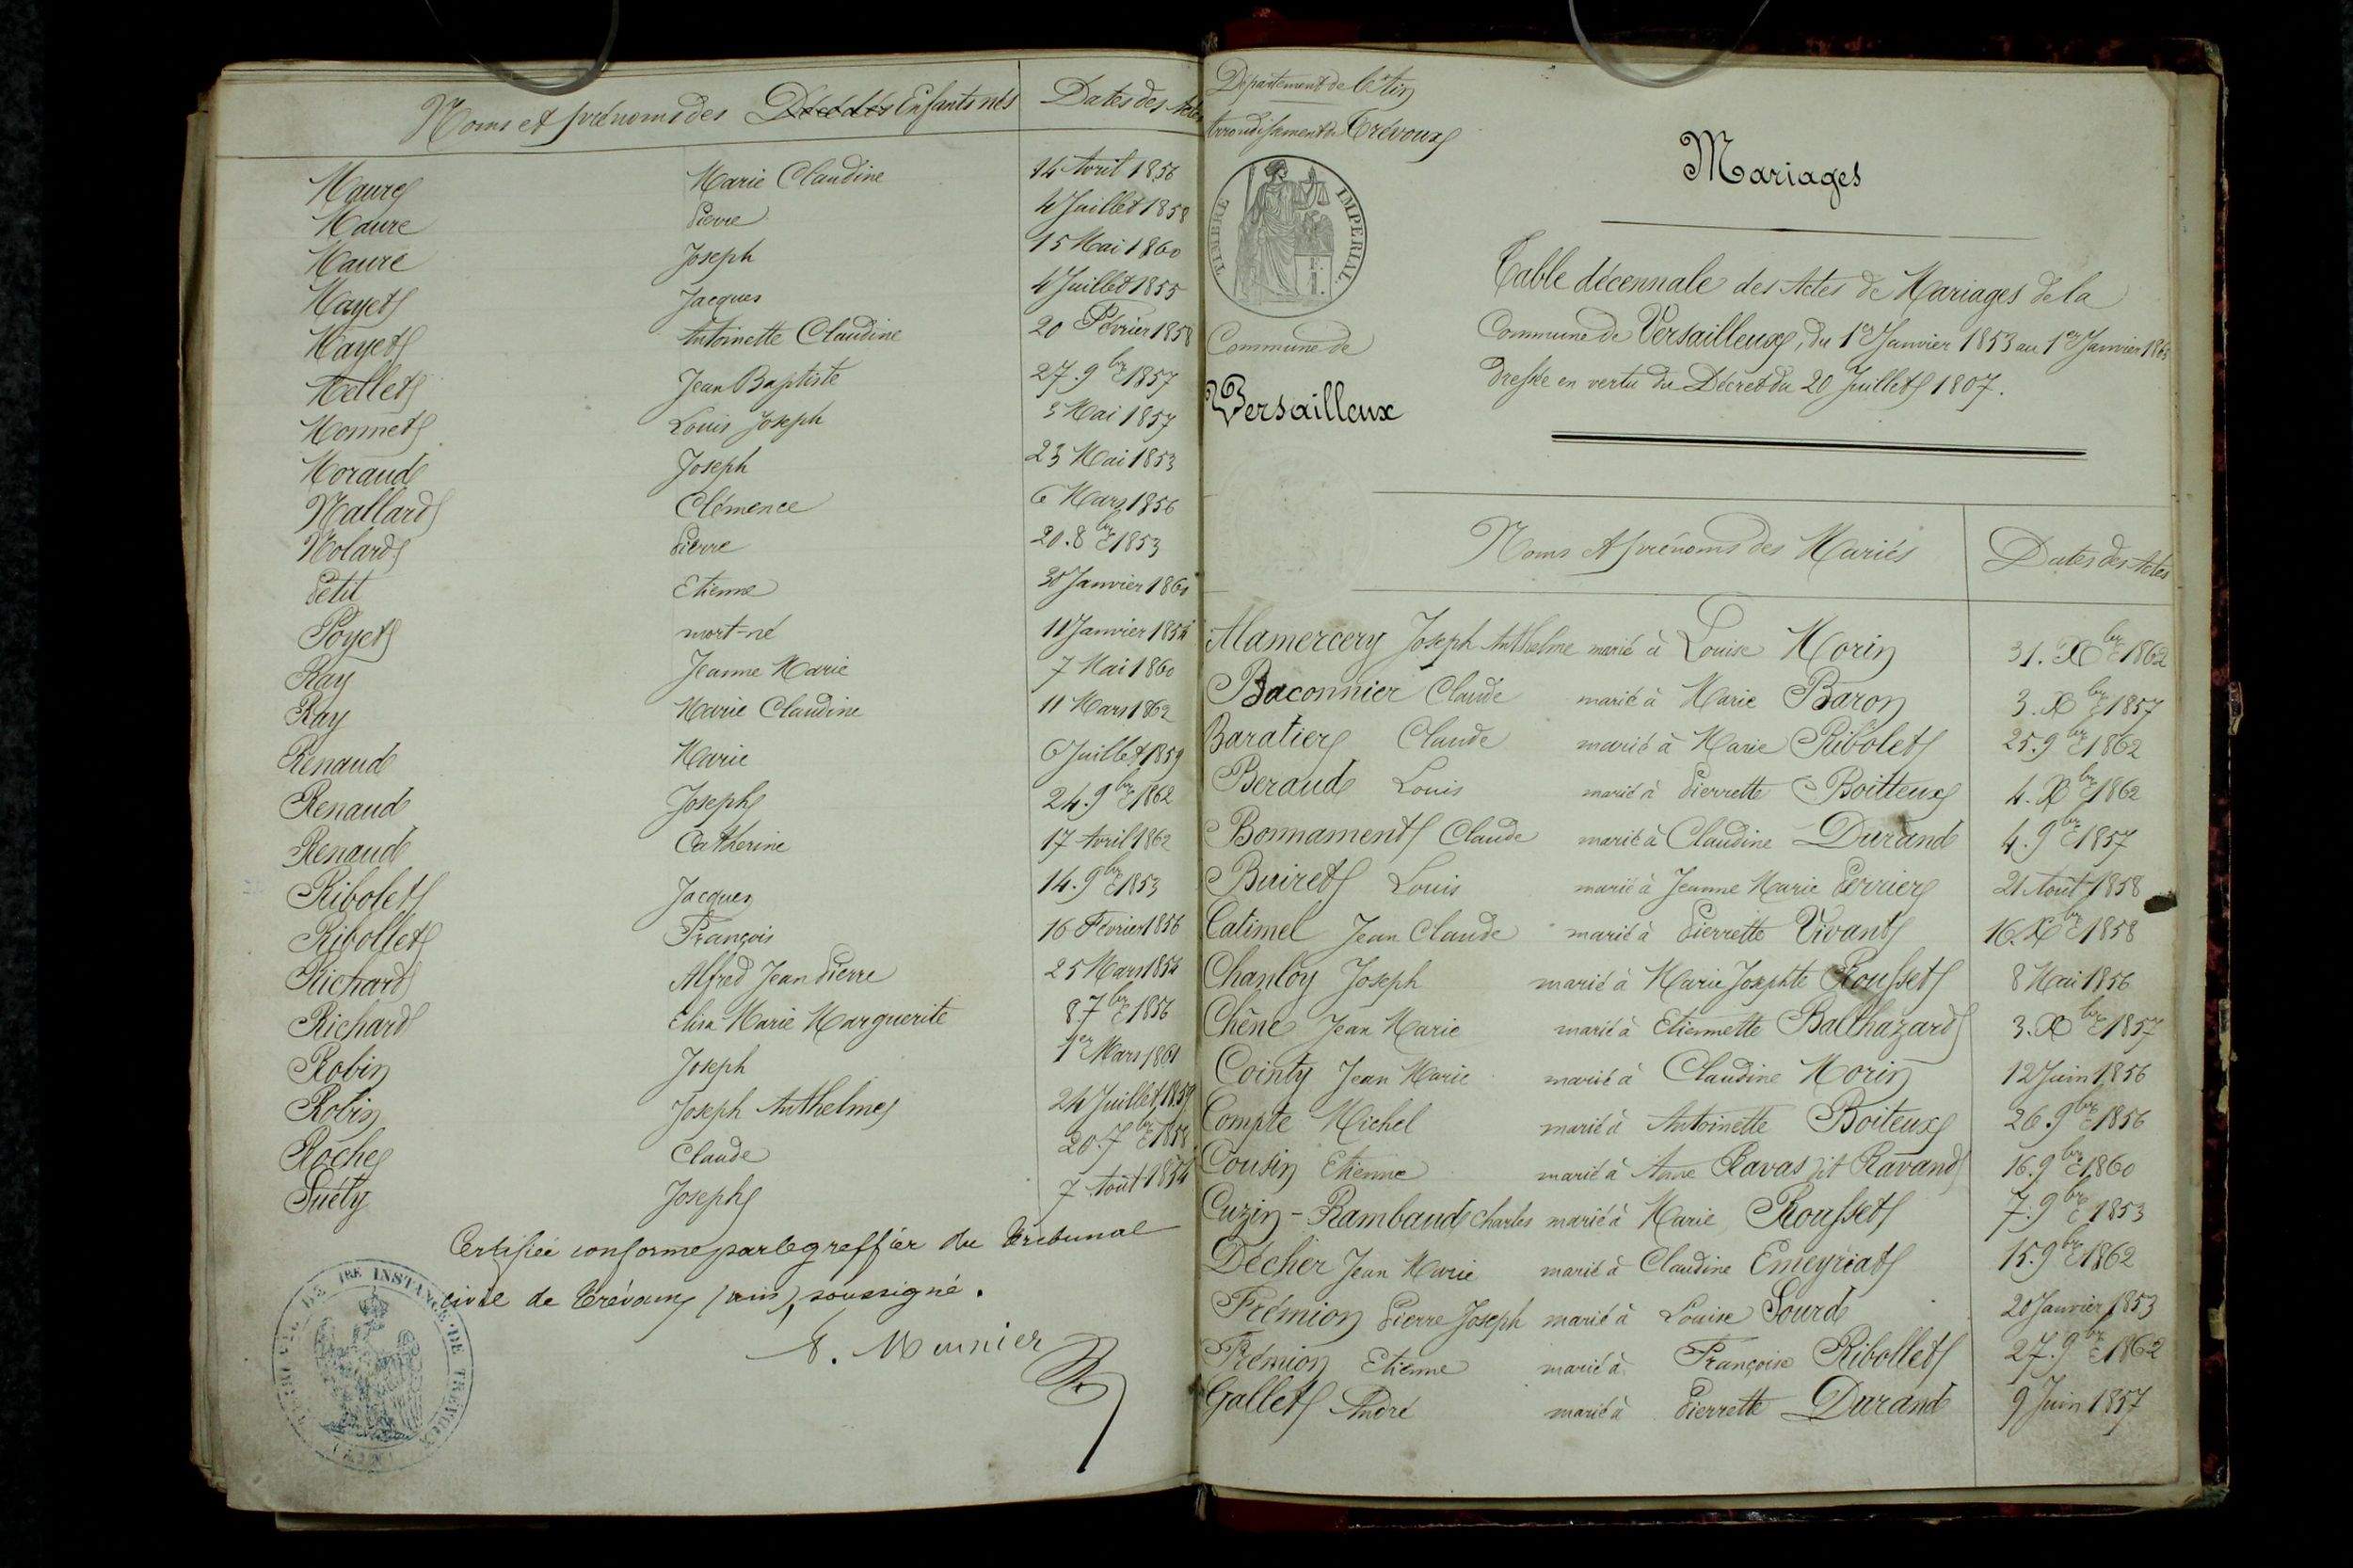 Noms et prénoms des Décédés Enfants nés Dates des Actes
Maure Marie Claudine 14 Avril 1856
Maure Pierre 4 Juillet 1858
Maure Joseph 15 Mai 1860
Mayet Jacques 4 Juillet 1855
Mayet Antoinette Claudine 20 Février 1858
Millet Jean Baptiste 27. 9bre 1857
Monnet Louis Joseph 3 Mai 1857
Moraud Joseph 23 Mai 1853
Nallard Clémence 6 Mars 1856
Nolard Pierre 20. 8bre 1853
Petit Etienne 30 Janvier 1860
Poyet mort-né 11 Janvier 1854
Ray Jeanne Marie 7 Mai 1860
Ray Marie Claudine 11 Mars 1862
Renaud Marie 6 Juillet 1859
Renaud Joseph 24. 9bre 1862
Renaud Catherine 17 Avril 1862
Ribolet Jacques 14. 9bre 1853
Ribollet François 16 Février 1856
Richard Alfred Jean Pierre 25 Mars 1854
Richard Elisa Marie Marguerite 8 7bre 1856
Robin Joseph 1er Mars 1861
Robin Joseph Anthelme 24 Juillet 1859
Roche Claude 20. 7bre 1858
Suéty Joseph 7 Août 1854
Certifiée conforme par le greffier du tribunal
civil de Trévoux (ain), soussigné.
Meunier
1RE INSTANCE DE TREVOUX
Département de l'Ain
Arrondissement de Trévoux
TIMBRE IMPERIAL
Commune de
Versailleux
Mariages
Table décennale des Actes de Mariages de la
Commune de Versailleux, du 1er Janvier 1853 au 1er Janvier 1863
dressée en vertu du Décret du 20 Juillet 1807.
Noms et prénoms des Mariés Dates des Actes
Alamercery Joseph Anthelme marié à Louise Morin 31. Xbre 1862
Baconnier Claude marié à Marie Baron 3. Xbre 1857
Baratier Claude marié à Marie Ribolet 25. 9bre 1862
Beraud Louis marié à Pierrette Boitteux 4. Xbre 1862
Bonnament Claude marié à Claudine Durand 4. 9bre 1857
Buiret Louis marié à Jeanne Marie Perrier 21 Août 1858
Catimel Jean Claude marié à Pierrette Vivant 16. Xbre 1858
Chanloy Joseph marié à Marie Josephte Rousset 8 Mai 1856
Chêne Jean Marie marié à Etiennette Balthazard 3. Xbre 1857
Cointy Jean Marie marié à Claudine Morin 12 Juin 1856
Compte Michel marié à Antoinette Boiteux 26. 9bre 1856
Cousin Etienne marié à Anne Ravas dit Ravand 16. 9bre 1860
Cuzin-Rambaud Charles marié à Marie Rousset 7. 9bre 1853
Décher Jean Marie marié à Claudine Emeyriat 15. 9bre 1862
Frémion Pierre Joseph marié à Louise Sourd 20 Janvier 1853
Frémion Etienne marié à Françoise Ribollet 27. 9bre 1862
Gallet André marié à Pierrette Durand 9 Juin 1857